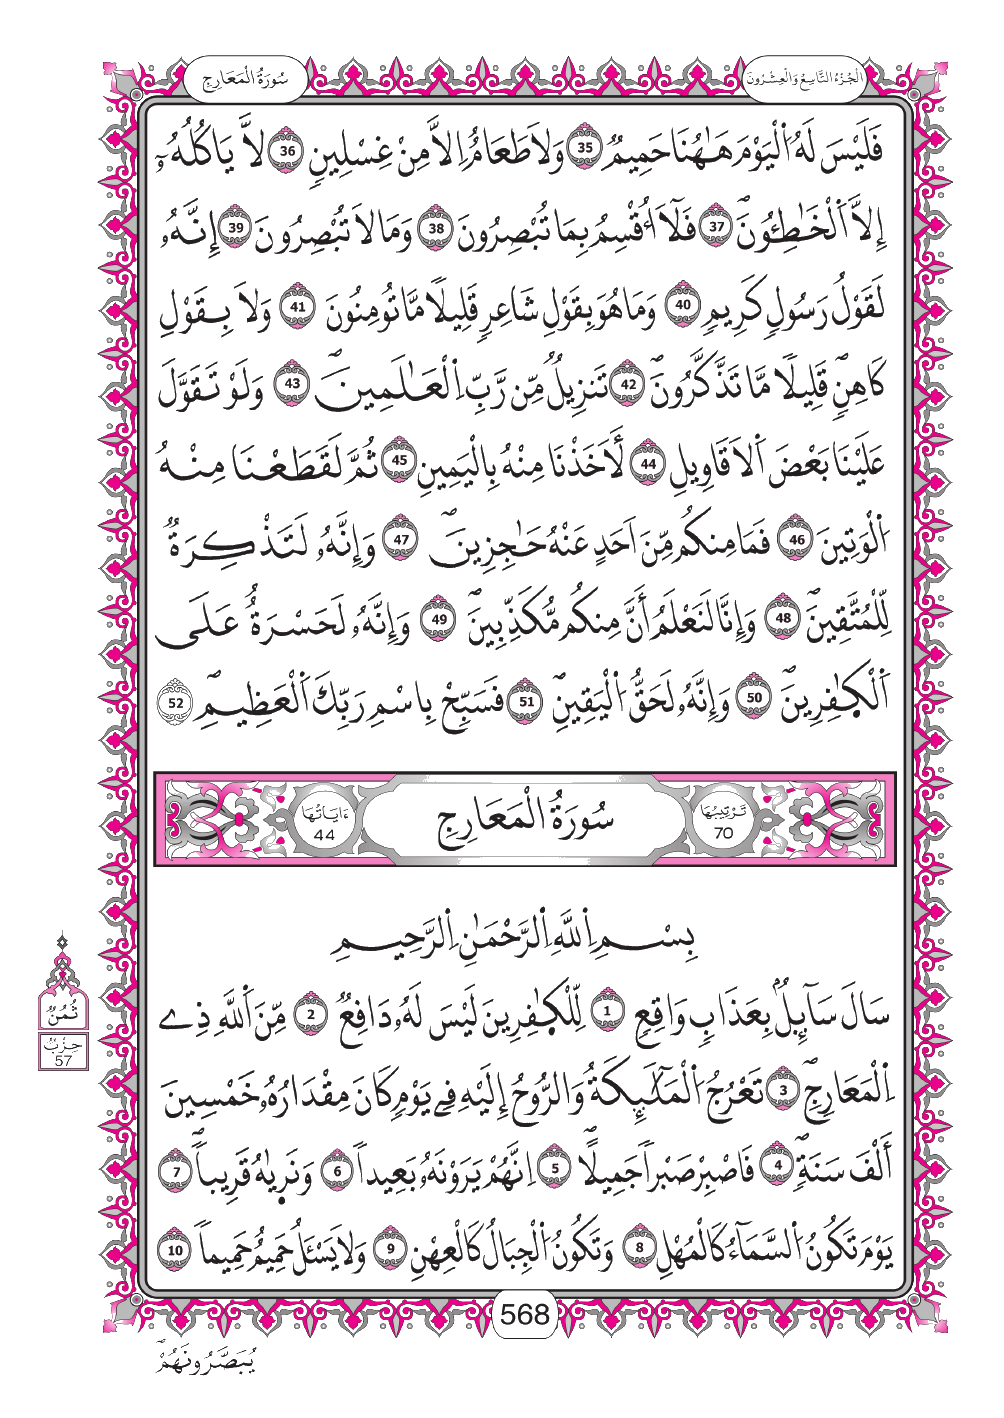 الْجُزْءُ التَّاسِعُ وَالْعِشْرُونَ
سُورَةُ الْمَعَارِجِ
فَلَيْسَ لَهُ اُ۬لْيَوْمَ هَٰهُنَا حَمِيمٞ 35 وَلَا طَعَامٌ اِلَّا مِنْ غِسْلِينٖ 36 لَّا يَاكُلُهُۥٓ
إِلَّا اَ۬لْخَٰطِـُٔونَۖ 37 فَلَآ أُقْسِمُ بِمَا تُبْصِرُونَ 38 وَمَا لَا تُبْصِرُونَ 39 إِنَّهُۥ
لَقَوْلُ رَسُولٖ كَرِيمٖ 40 وَمَا هُوَ بِقَوْلِ شَاعِرٖ قَلِيلاٗ مَّا تُومِنُونَ 41 وَلَا بِقَوْلِ
كَاهِنٖۖ قَلِيلاٗ مَّا تَذَّكَّرُونَۖ 42 تَنزِيلٞ مِّن رَّبِّ اِ۬لْعَٰلَمِينَۖ 43 وَلَوْ تَقَوَّلَ
عَلَيْنَا بَعْضَ اَ۬لَاقَاوِيلِ 44 لَأَخَذْنَا مِنْهُ بِالْيَمِينِ 45 ثُمَّ لَقَطَعْنَا مِنْهُ
اُ۬لْوَتِينَ 46 فَمَا مِنكُم مِّنَ اَحَدٍ عَنْهُ حَٰجِزِينَۖ 47 وَإِنَّهُۥ لَتَذْكِرَةٞ
لِّلْمُتَّقِينَۖ 48 وَإِنَّا لَنَعْلَمُ أَنَّ مِنكُم مُّكَذِّبِينَۖ 49 وَإِنَّهُۥ لَحَسْرَةٌ عَلَى
اَ۬لْكٰ۪فِرِينَۖ 50 وَإِنَّهُۥ لَحَقُّ اُ۬لْيَقِينِۖ 51 فَسَبِّحْ بِاسْمِ رَبِّكَ اَ۬لْعَظِيمِۖ 52
تَرْتِيبُهَا 70
سُورَةُ الْمَعَارِجِ
ءَايَاتُهَا 44
بِسْمِ اِ۬للَّهِ اِ۬لرَّحْمَٰنِ اِ۬لرَّحِيمِ
سَالَ سَآئِلُۢ بِعَذَابٖ وَاقِعٖ 1 لِّلْكٰ۪فِرِينَ لَيْسَ لَهُۥ دَافِعٞ 2 مِّنَ اَ۬للَّهِ ذِے
اِ۬لْمَعَارِجِۖ 3 تَعْرُجُ اُ۬لْمَلَٰٓئِكَةُ وَالرُّوحُ إِلَيْهِ فِے يَوْمٖ كَانَ مِقْدَارُهُۥ خَمْسِينَ
أَلْفَ سَنَةٖۖ 4 فَاصْبِرْ صَبْراٗ جَمِيلاًۖ 5 اِنَّهُمْ يَرَوْنَهُۥ بَعِيداٗ 6 وَنَر۪يٰهُ قَرِيباٗۖ 7
يَوْمَ تَكُونُ اُ۬لسَّمَآءُ كَالْمُهْلِ 8 وَتَكُونُ اُ۬لْجِبَالُ كَالْعِهْنِ 9 وَلَا يَسْـَٔلُ حَمِيمٌ حَمِيماٗ 10
ثُمُنٌ
حِزْبُ
57
568
يُبَصَّرُونَهُمْۖ